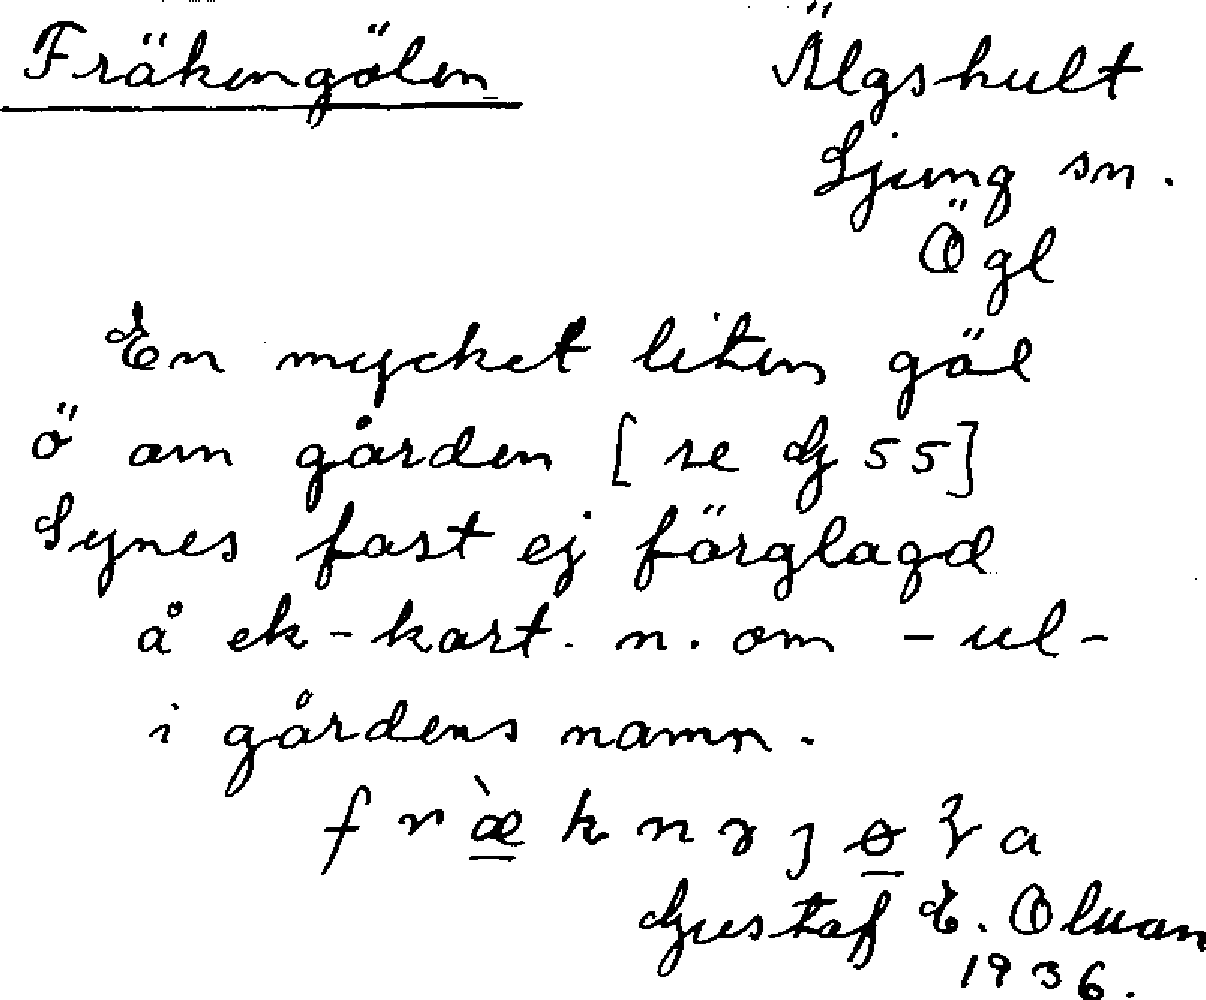 Fräkengölen Älgshult
Ljung sn.
Ögl
En mycket liten göl
ö om gården [se G 55]
Synes fast ej färglagd
å ek-kart. n. om -ul-
i gårdens namn.
Gustaf E. Olman
1936.